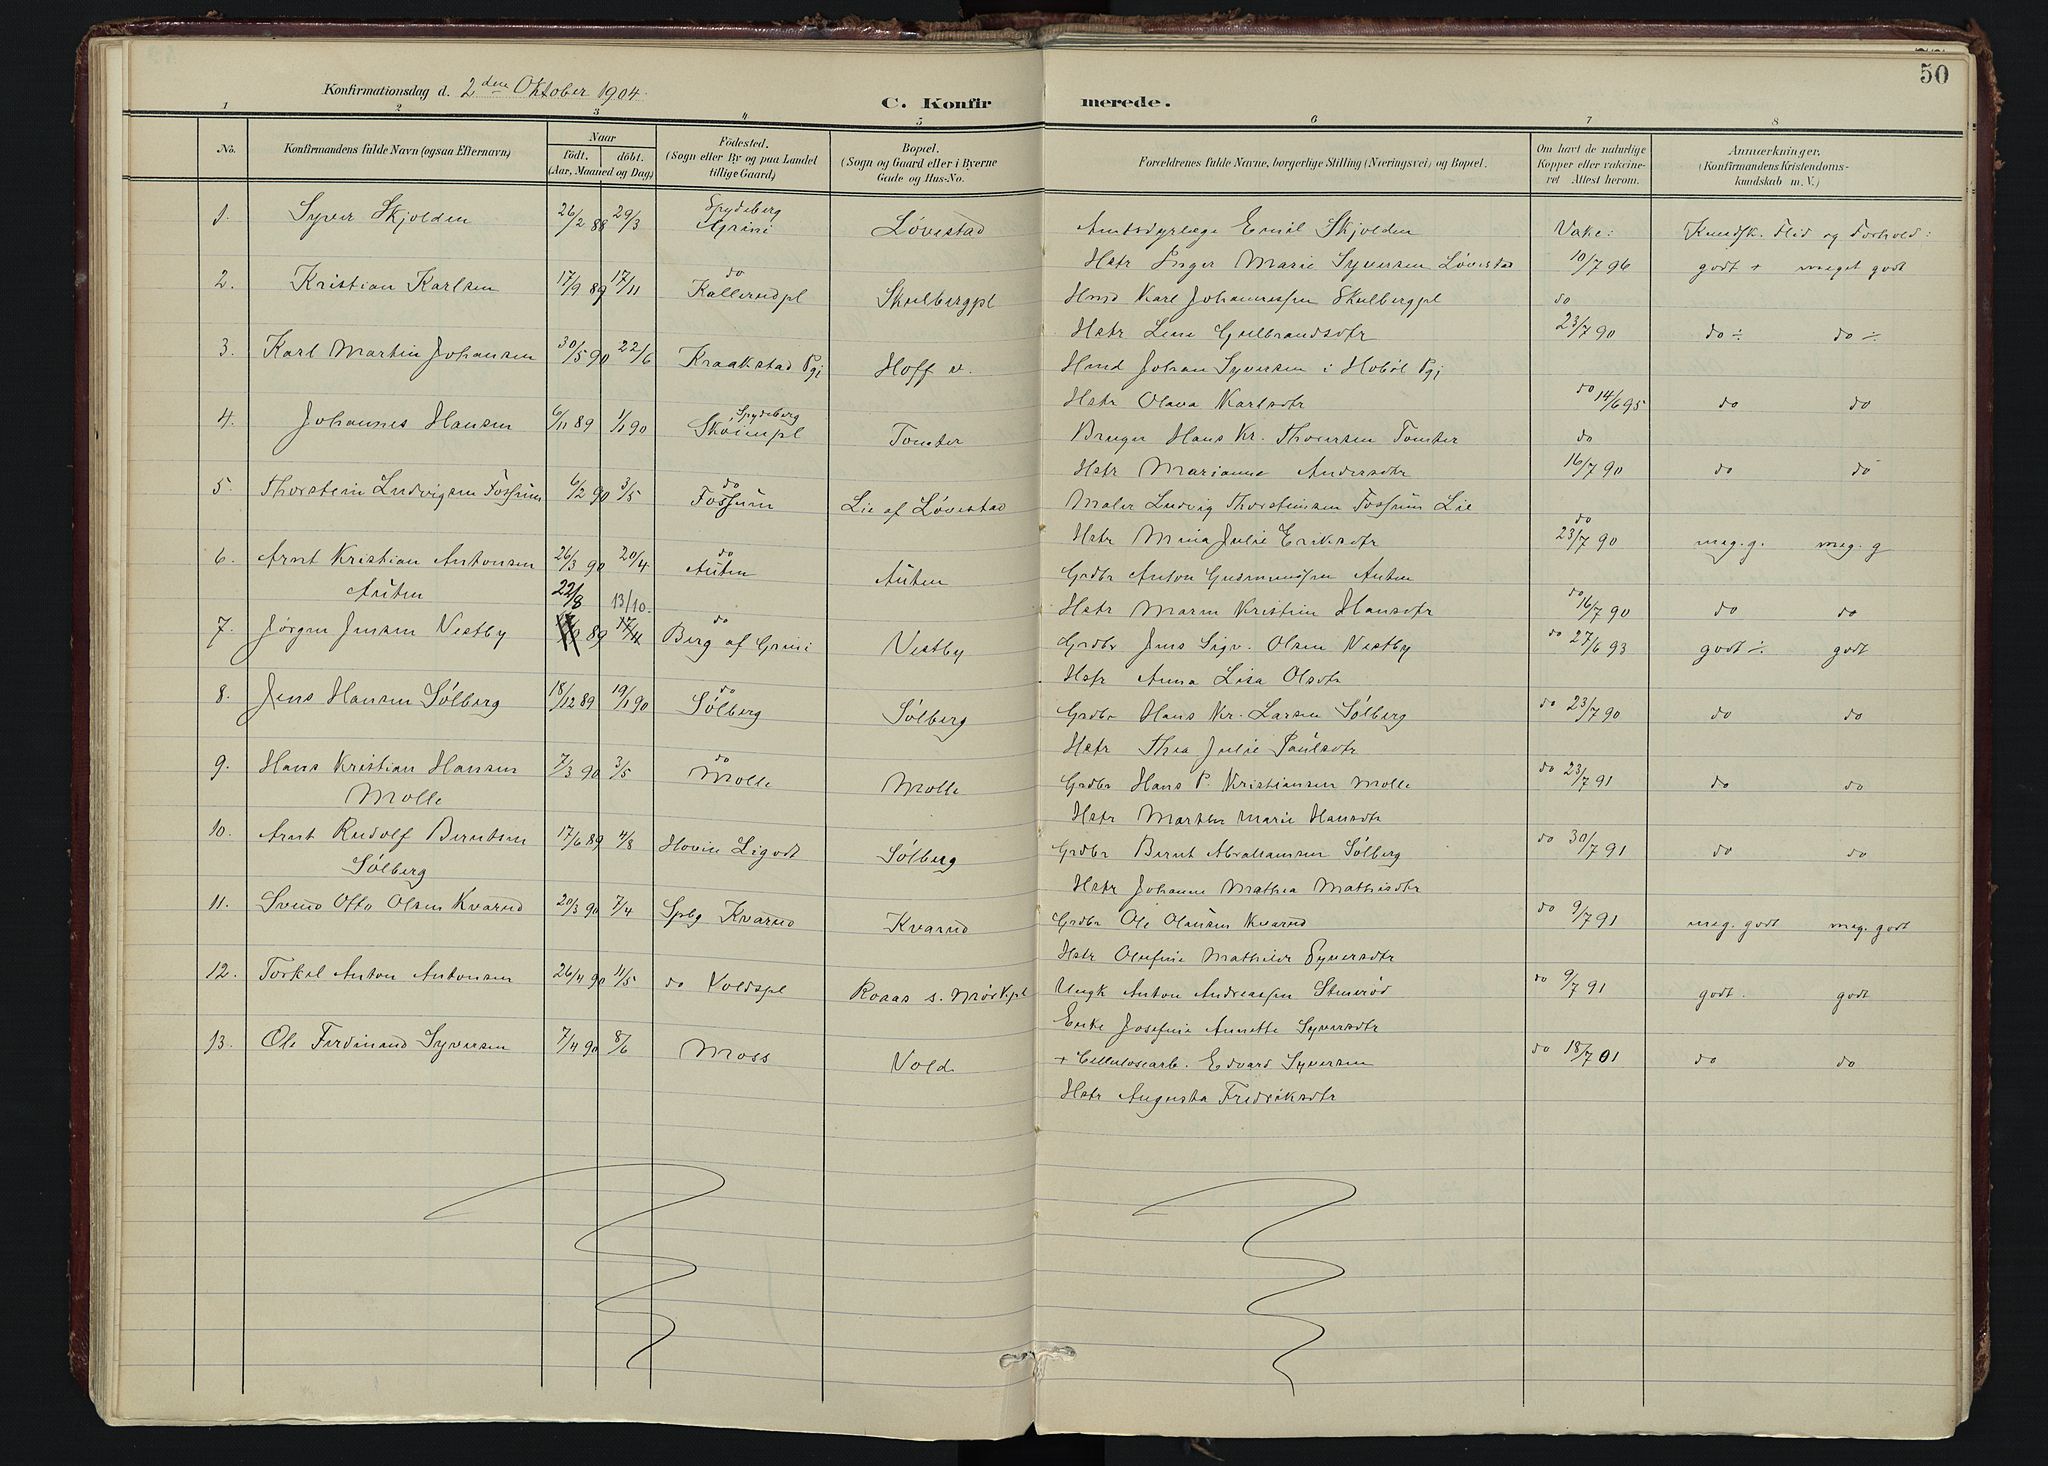 50
Konfirmationsdag d. 2den Oktober 1904.
C. Konfirmerede.
1 2 3 4 5 6 7 8
No. Konfirmandens fulde Navn (ogsaa Efternavn) Naar födt. döbt. (Aar, Maaned og Dag) Födested. (Sogn eller By og paa Landet tillige Gaard) Bopæl. (Sogn og Gaard eller i Byerne Gade og Hus-No. Forældrenes fulde Navne, borgerlige Stilling (Næringsvei) og Bopæl. Om havt de naturlige Kopper eller vaccineret Attest herom. Anmærkninger. (Konfirmandens Kristendomskundskab m. V.)
1. Syver Skjolden 26/2 88 29/3 Spydeberg Grini Løvestad Amtsdyrlæge Emil Skjolden Vake: Kundsk. Flid og Forhold:
Hstr Inger Marie Syversen Løvestad 10/7 96 godt + meget godt
2. Kristian Karlsen 17/9 89 17/11 do Kallerudpl Skulbergpl Hmd Karl Johannessen Skulbergpl do
Hstr Line Gulbrandsdtr 23/7 90 do ÷ do ÷
3. Karl Martin Johansen 30/5 90 22/6 Kraakstad Pgj Hoff v. Hmd Johan Syversen i Hobøl Pgj
Hstr Olava Karlsdtr do 14/6 95 do do
4. Johannes Hansen 6/11 89 1/1 90 Spydeberg Tomter Bruger Hans Kr. Thoresen Tomter do
Hstr Marianne Andersdtr 16/7 90 do do
5. Thorstein Ludvigsen Fossum 6/2 90 3/5 do Fossum Lie af Løvestad Maler Ludvig Thorsteinsen Fossum Lie
Hstr Mina Julie Eriksdtr do 23/7 90 meg. g. meg. g
6. Arnt Kristian Antonsen 26/3 90 20/4 do Auten Auten Grdbr Anton Gudmundsen Auten
Auten Hstr Maren Kristine Hansdtr do 16/7 90 do do
22/8 13/10.
7. Jørgen Jensen Vestby 89 17/4 do Berg af Grini Vestby Grdbr Jens Sigv. Olsen Vestby do 27/6 93 godt ÷ godt
Hstr Anna Lisa Olsdtr
8. Jens Hansen Sølberg 18/12 89 19/1 90 do Sølberg Sølberg Grdbr Hans Kr. Larsen Sølberg do 23/7 90 do do
Hstr Thea Julie Paulsdtr
9. Hans Kristian Hansen 7/3 90 3/5 do Molle Molle Grdbr Hans P. Kristiansen Molle do 23/7 91 do do
Molle Hstr Marthe Marie Hansdtr
10. Arnt Rudolf Berntsen 17/6 89 4/8 Hovin Sølberg Grdbr Bernt Abrahamsen Sølberg do 30/7 91 do do
Sølberg Hstr Johanne Mathea Mathisdtr
11. Svend Otto Olsen Kvarud 20/3 90 7/4 Spbg Kvarud Kvarud Grdbr Ole Olausen Kvarud do 9/7 91 meg. godt meg. godt
Hstr Olefine Mathilde Syversdtr
12. Torkel Anton Antonsen 26/4 90 11/5 do Voldspl Roaas s. Mørkpl Ungk Anton Andreassen do 9/7 91 godt. godt
Enke Josefine Annette Syversdtr
13. Ole Ferdinand Syversen 7/4 90 8/6 Moss Vold + Cellulosearb. Edvard Syversen do 18/7 01 do do
Hstr Augusta Fredriksdtr